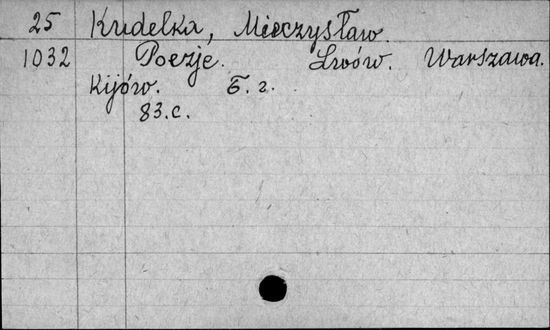 25 Kudelka, Mieczysław
1032 Poezje. Lwów. Warszawa.
Kijów. Б. г.
83.с.